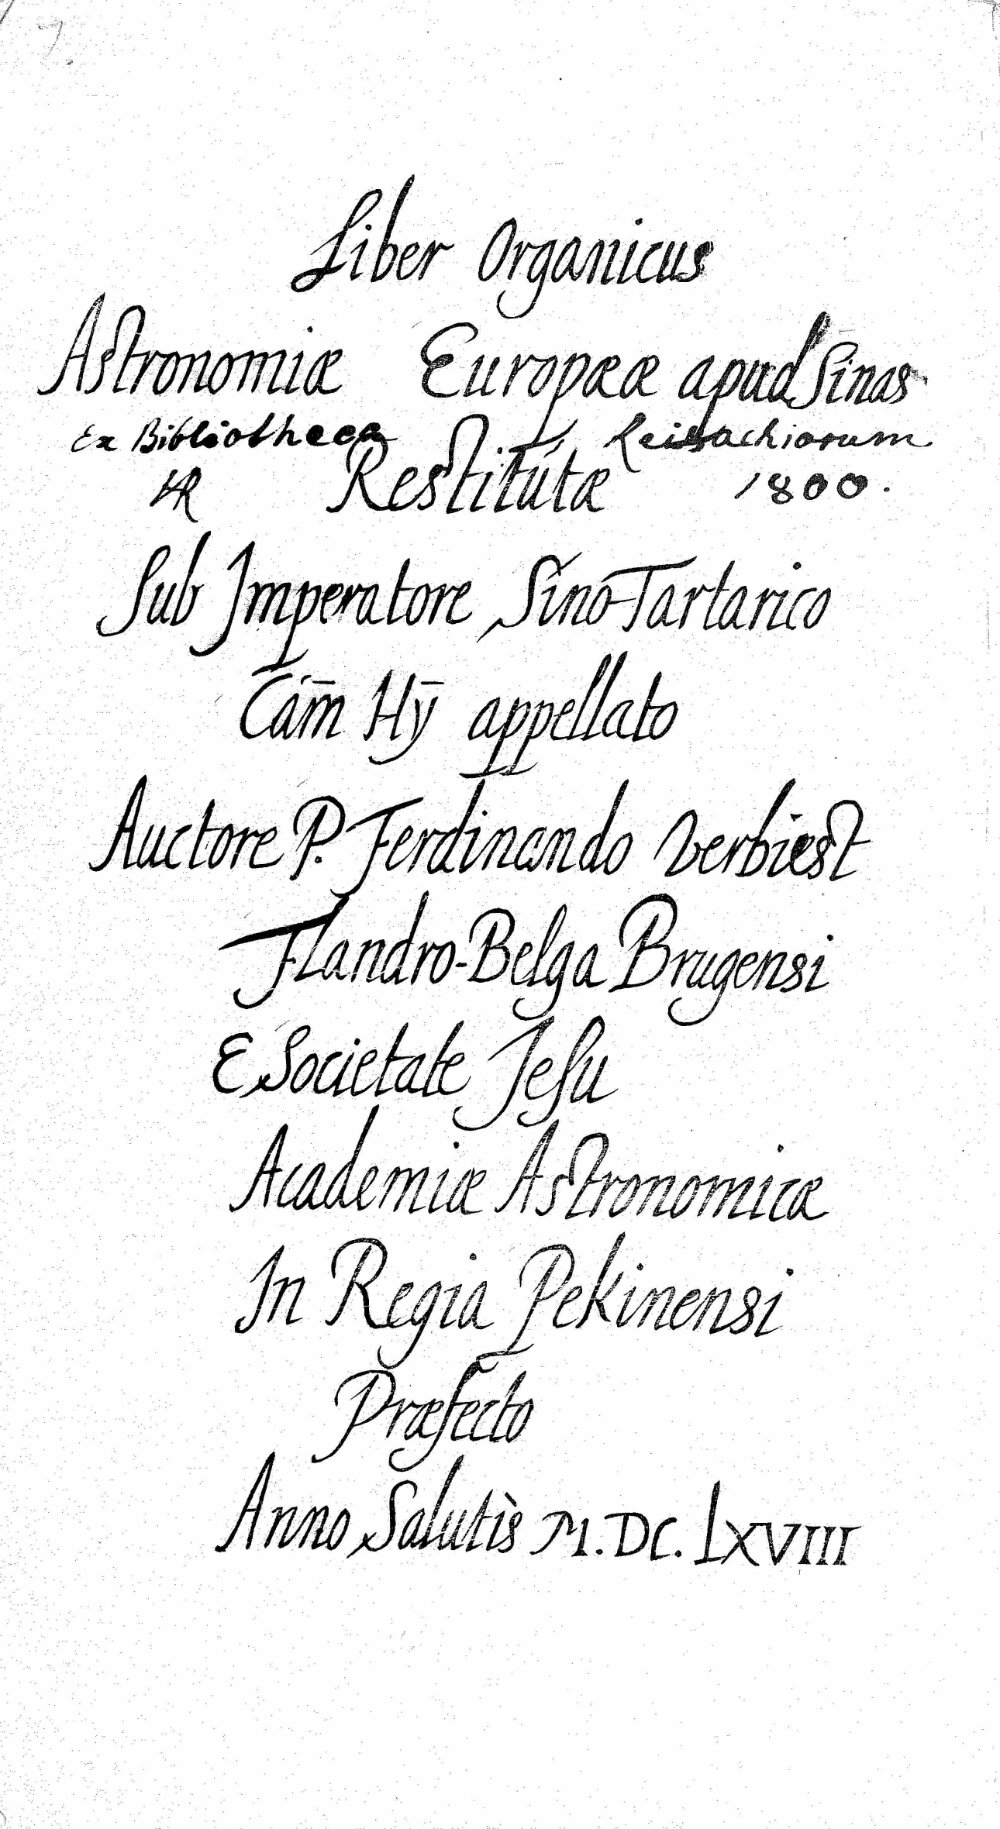 Liber Organicus
Astronomiæ Europææ apud Sinas
Ex Bibliotheca Reisachiorum
Restitútæ 1800.
Sub Imperatore Sino-Tartarico
Cám̄ Hȳ appellato
Auctore P. Ferdinando Verbiest
Flandro-Belga Brugensi
E Societate Jesu
Academiæ Astronomicæ
In Regia Pekinensi
Præfecto
Anno Salutìs M.DC.LXVIII